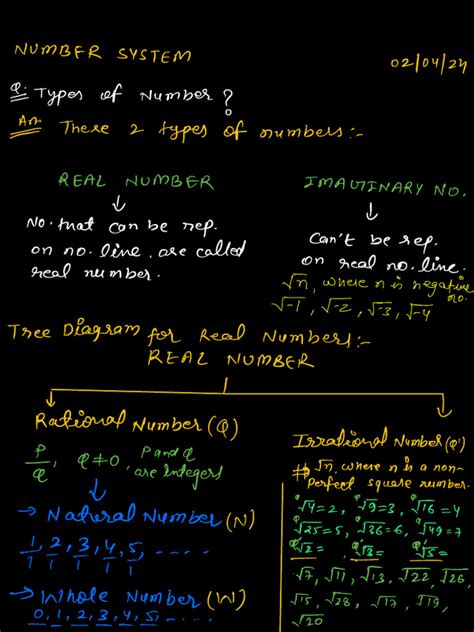 NUMBER SYSTEM
02/04/24
Q. Types of Number ?
Ans. There 2 types of numbers:-
REAL NUMBER
↓
No. that can be rep.
on no. line, are called
real number.
IMAUTINARY NO.
↓
Can't be rep.
on real no. line.
√n, where n is negative no.
√-1, √-2, √-3, √-4
Tree Diagram for Real Numbers:-
REAL NUMBER
Rational Number (Q)
P/Q, Q≠0, P and Q are integers
↓
→ Natural Number (N)
1/1, 2/1, 3/1, 4/1, 5/1, .....
→ Whole Number (W)
0, 1, 2, 3, 4, 5, ....
Irrational Number (Q')
√n, where n is a non-
perfect square number.
Q √4=2, Q √9=3, Q √16=4
Q √25=5, Q √36=6, Q √49=7
Q' √2=, Q' √3=, Q' √5=
√7, √11, √13, √22, √26,
√15, √28, √17, √19,
√20